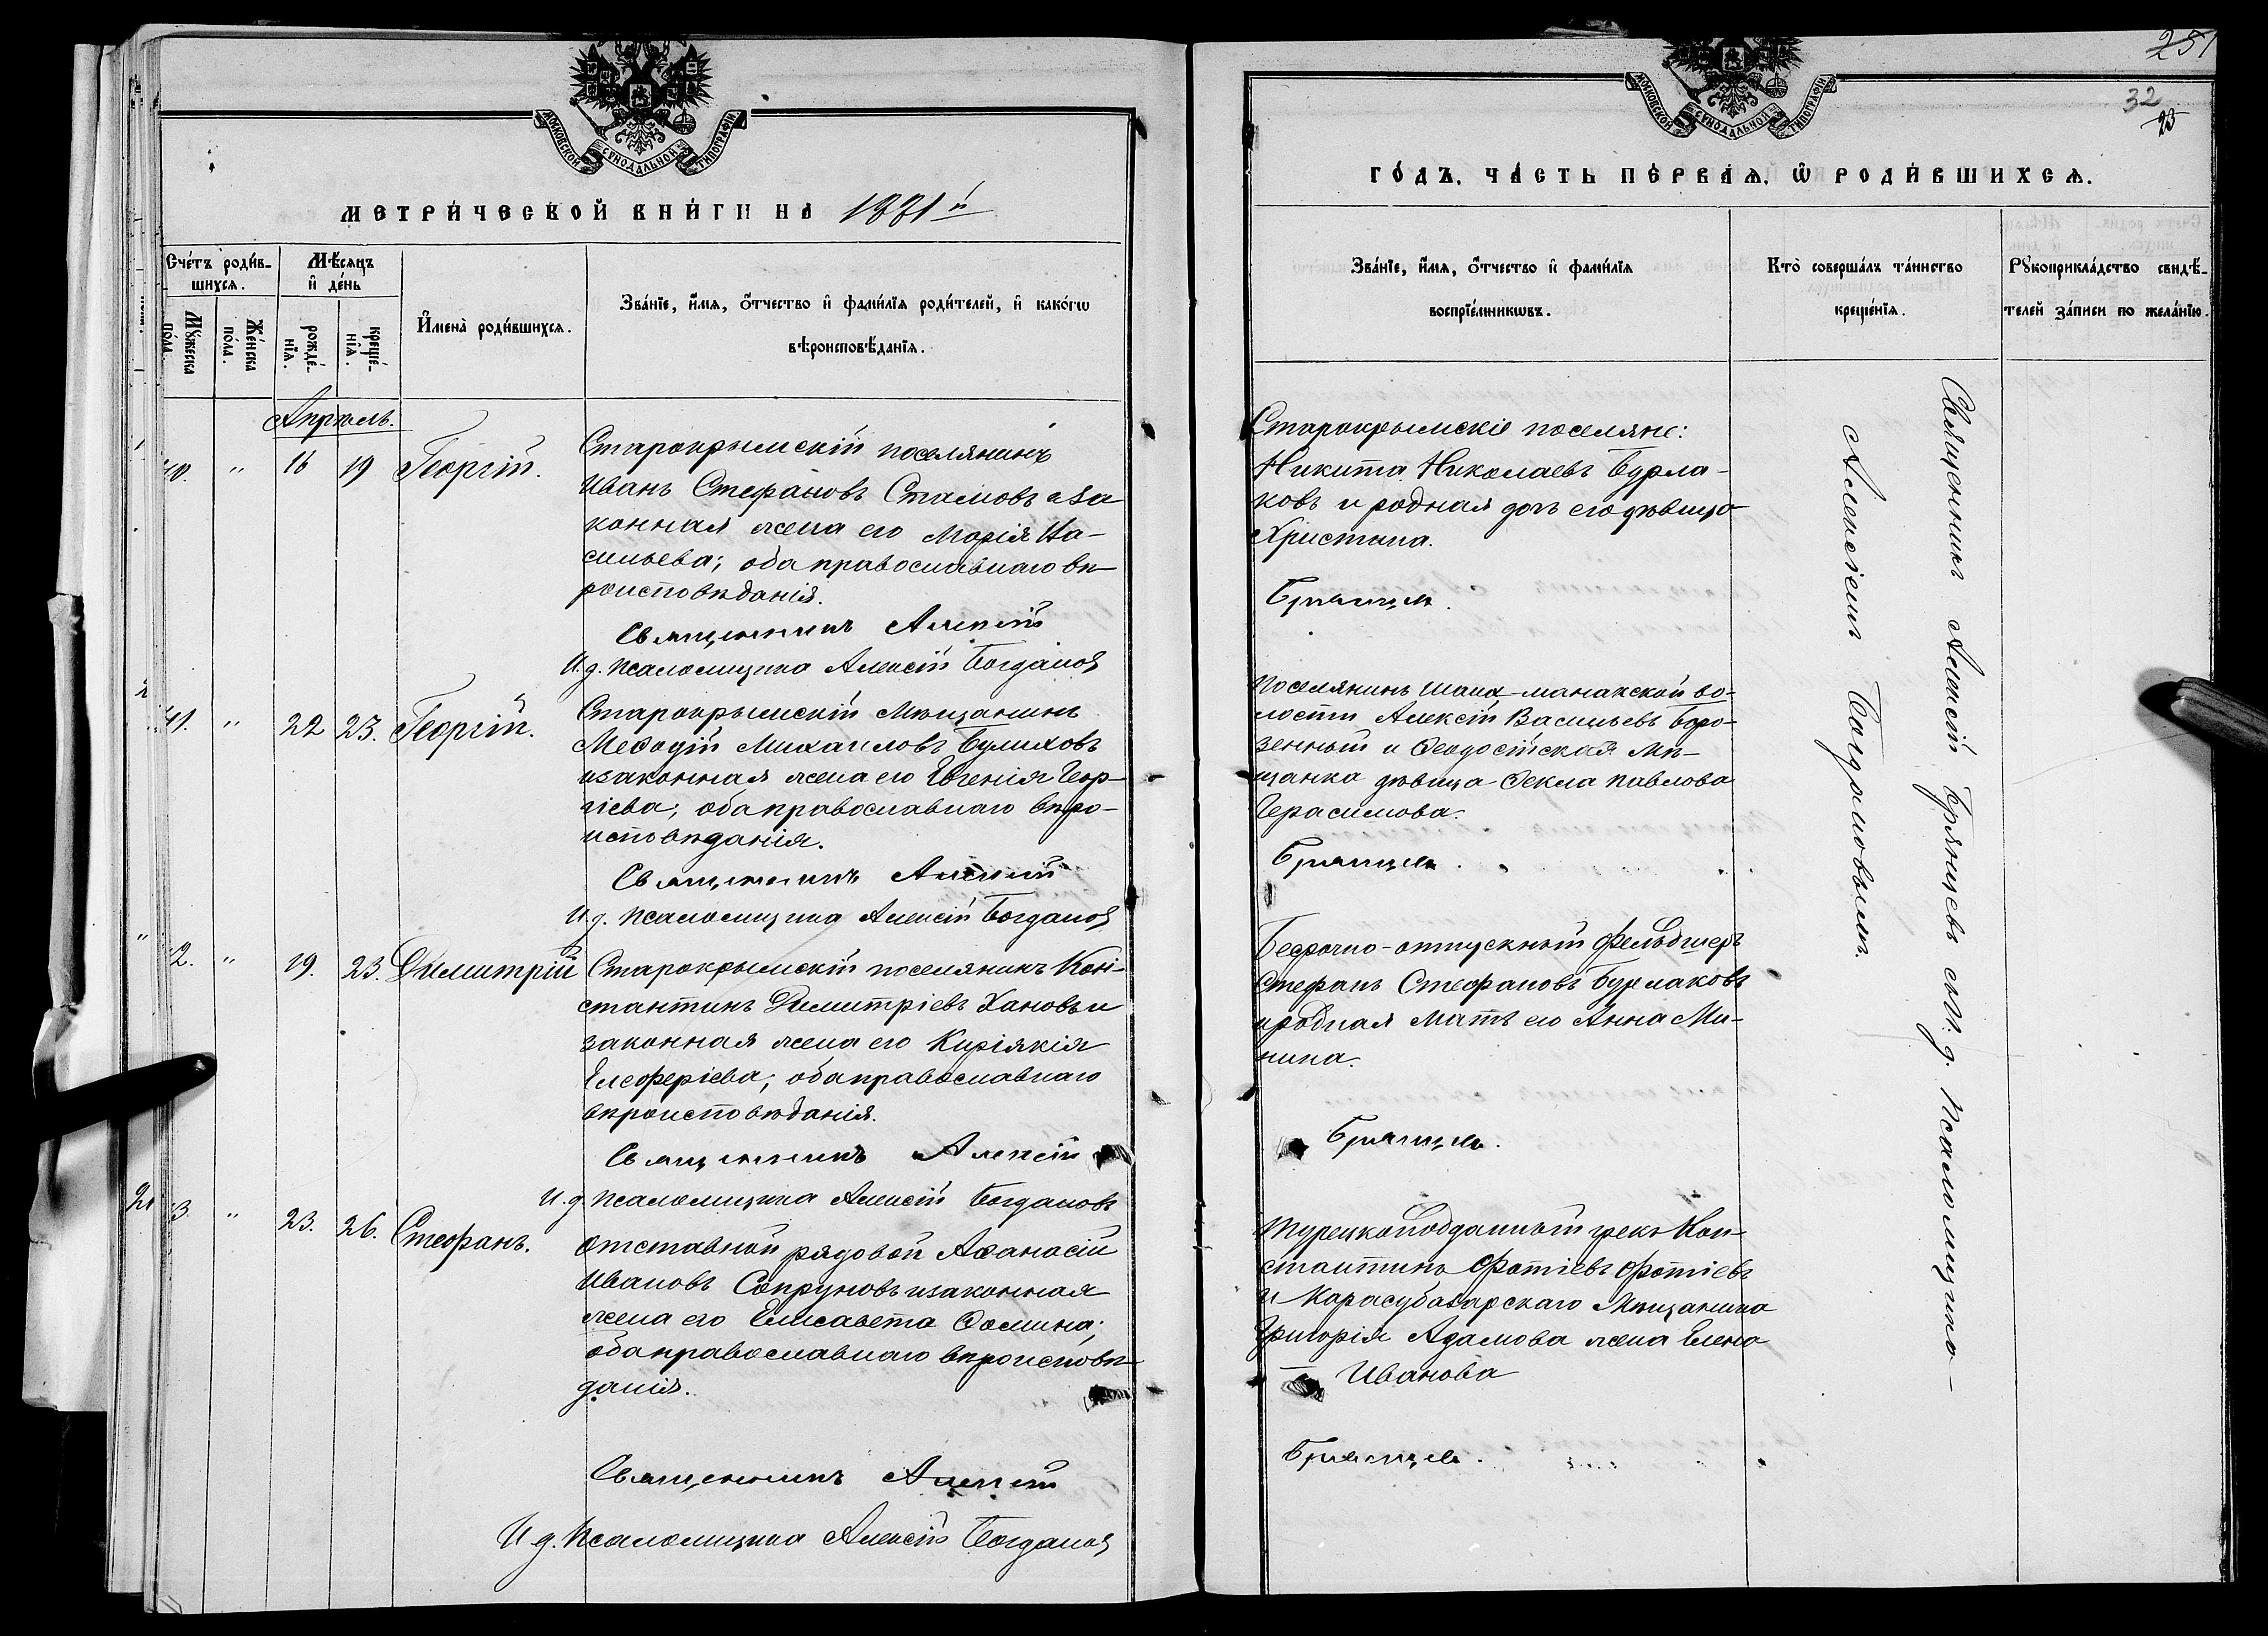 МОСКОВСКОЙ СѴНОДАЛЬНОЙ ТИПОГРАФІИ
МЕТРИ́ЧЕСКОЙ КНИ́ГИ НА 1881й
Сче́тъ роди́в-
шихся.
Мѣ́сяцъ
и҆ де́нь
И҆мена̀ роди́вшихся.
Зва́нїе, и҆́мя, ѻ҆́тчество и҆ фами́лїя роди́телей, и҆ како́гѡ
вѣроисповѣ́данїя.
Мꙋ́жеска по́ла.
Же́нска по́ла.
рожде́-
нїя.
креще́-
нїя.
Апрѣль.
40. " 16 19 Георгій.
Старокрымскій поселянинъ
Иванъ Стефановъ Стамовъ и за
конная жена его Марія Ва-
сильева; оба православнаго вѣ-
роисповѣданія.
Священникъ Алексій
И. д. псаломщика Алексій Богданов
41. " 22 23. Георгій.
Старокрымскій мѣщанинъ
Меѳодій Михаиловъ Булиховъ
и законная жена его Евгенія Геор-
гіева; оба православнаго вѣро-
исповѣданія.
Священникъ Алексій
И. д. псаломщика Алексій Богданов
2. " 19. 23. Димитрій
Старокрымскій поселянинъ Кон-
стантинъ Димитріевъ Хановъ и
законная жена его Киріякія
Елеоферіева; оба православнаго
вѣроисповѣданія.
Священникъ Алексій
И. д. псаломщика Алексій Богдановъ
3 " 23. 26. Стефанъ.
Отставной рядовой Аѳанасій
Ивановъ Сопруновъ и законная
жена его Елисавета Ѳомина;
оба православнаго вѣроисповѣ-
данія.
Священникъ Алексій
И. д. Псаломщика Алексій Богданов
251
32
23
МОСКОВСКОЙ СѴНОДАЛЬНОЙ ТИПОГРАФІИ
ГО́ДЪ, ЧА́СТЬ ПЕ́РВАЯ, Ѡ҆ РОДИ́ВШИХСЯ.
Зва́нїе, и҆́мя, ѻ҆́тчество и҆ фами́лїя
воспрїе́мникѡвъ.
Кто̀ соверша́лъ та́инство
креще́нїя.
Рꙋкоприкла́дство свидѣ́-
телей за́писи по жела́нїю.
Старокрымскіе поселяне:
Никита Николаевъ Бурла-
ковъ и родная дочь его дѣвица
Христина.
Брянцев.
Поселянинъ Шаих-Монахской во-
лости Алексій Васильевъ Боро-
зенный и Ѳеодосійская мѣ-
щанка дѣвица Ѳекла Павлова
Герасимова.
Брянцев.
Безсрочно-отпускный фельдшеръ
Стефанъ Стефановъ Бурлаковъ
и родная мать его Анна Ми-
нина.
Брянцев.
Турецкоподданный грекъ Кон-
стантинъ Фотіевъ Фотіевъ
и Карасубазарскаго мѣщанина
Григорія Адамова жена Елена
Иванова
Брянцев.
Священникъ Алексій Брянцевъ съ И. д. псаломщика
Алексіемъ Богдановымъ.